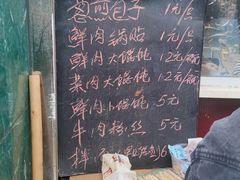 煎包子 1元/只
鲜肉锅贴 1元/只
鲜肉大馄饨 12元/
菜肉大馄饨 12元/
鲜肉小馄饨 5元
牛肉粉丝 5元
拌